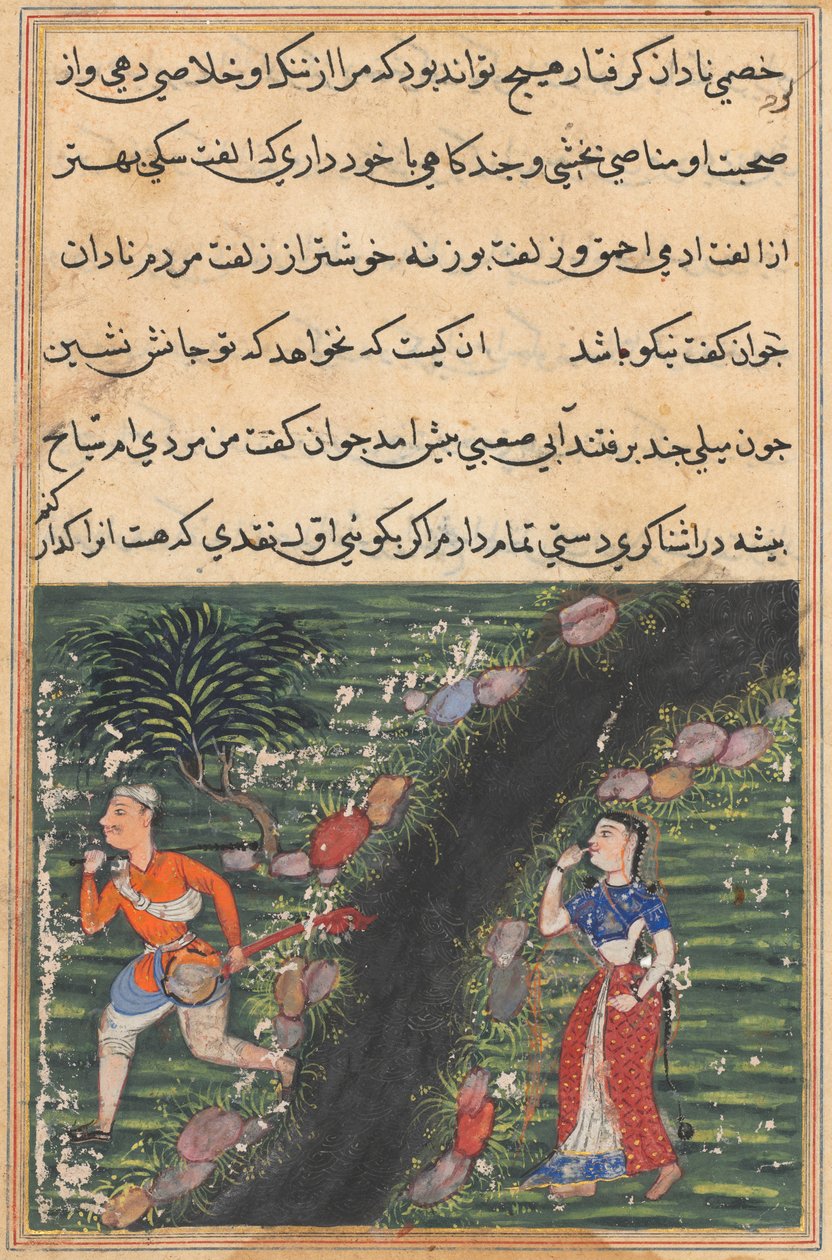 خصمي نادان کرفتار هیچ تواند بود که مرا از ننک او خلاصي دهي و از
صحبت او مناصي بخشي و جند کاهي با خود داري که الفت سکي بهتر
از الفت ادمي احمق و زلفت بوزنه خوشتر از زلفت مردم نادان
جوان کفت نیکو باشد ان کیست که نخواهد که تو جانش نشین
جون میلي جند برفتند آبي صعبي بیش امد جوان کفت من مردي ام سیّاح
بیشه در اشناکري دستي تمام دارم اکر بکوئي اوّل نقدي که هست انرا کدار کنم